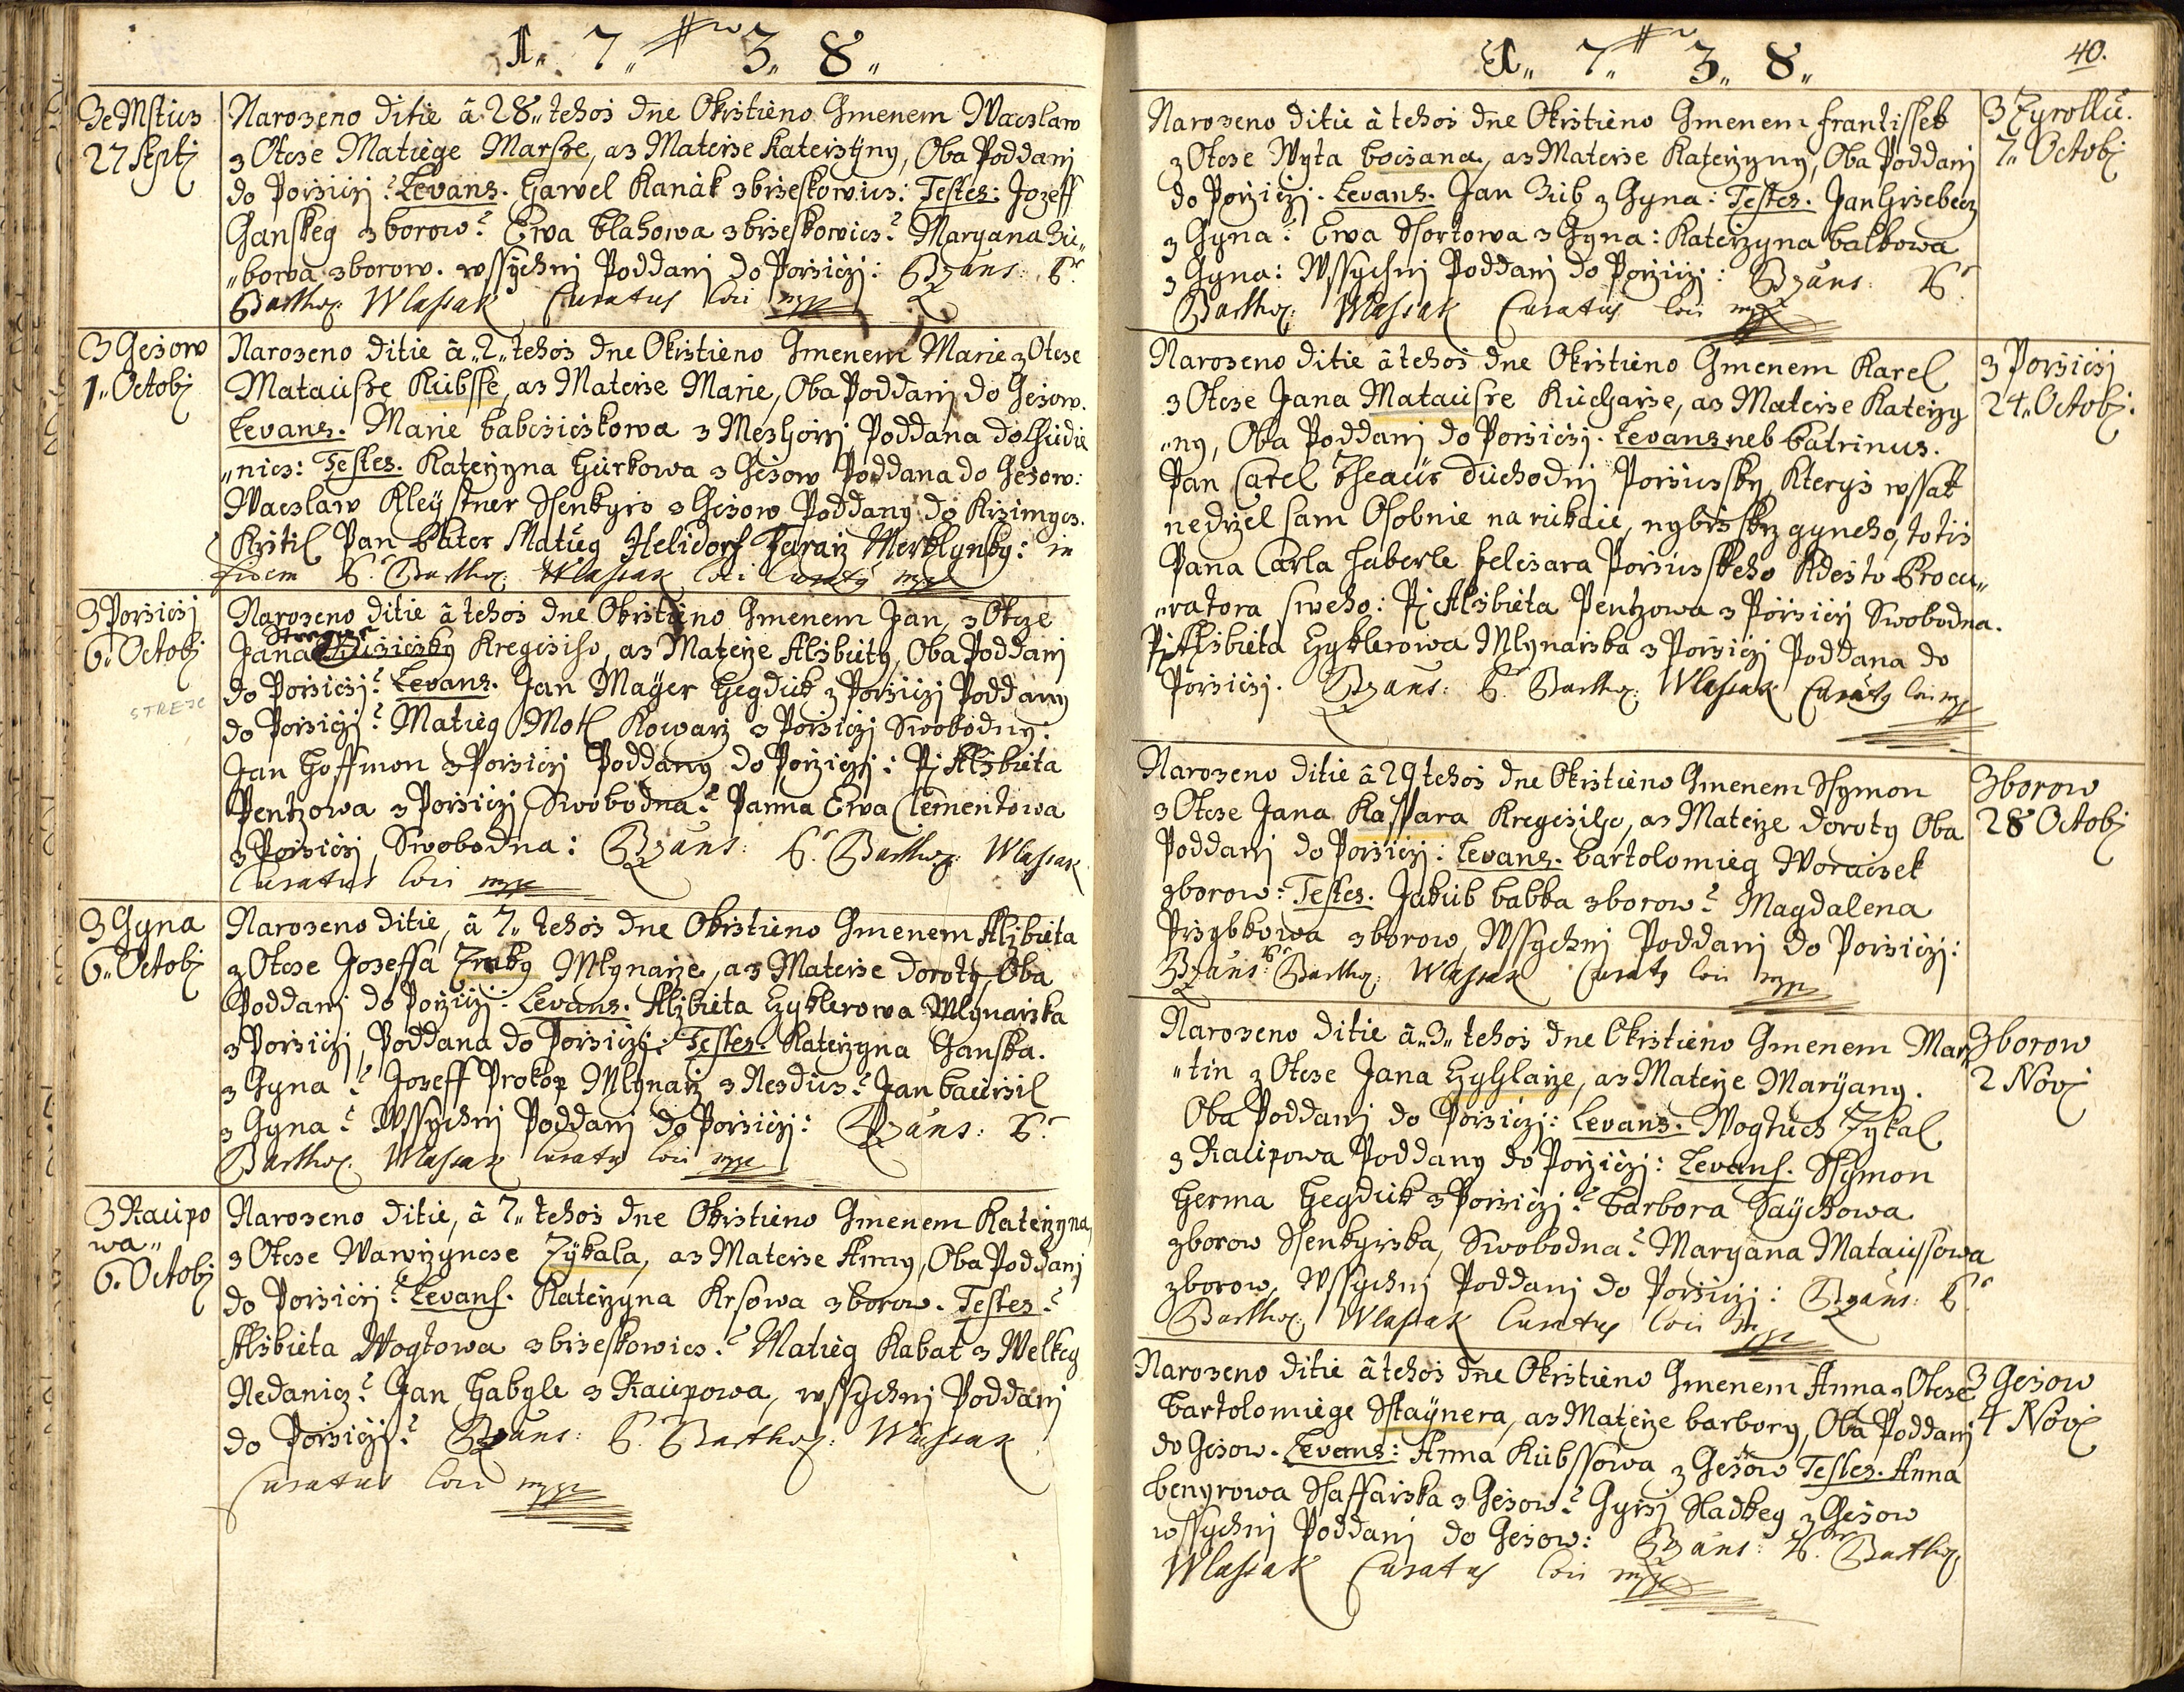 1. 7. 3. 8.
Ze Mstics
27 Septj
Narozeno ditie â 28. tehoż dne Okrstieno Gmenem Waczlaw
z Otcze Matiege Marsse, a z Materże Katerżiny, Oba Poddanj
do Porżiczj: Levans. Hawel Kanak z brzeskowicz: Testes: Jozeff
Ganskeg z borow: Ewa blahowa z brzeskowicz: Maryana Zu„
„bowa z borow. wssychnj Poddanj do Porżiczj: Bzans: P.
Barthol: Wlassak Curatus loci mpp
Z Geżow
1. Octobj
Narozeno ditie â „2„ tehoż dne Okrstieno Gmenem Marie z Otcze
Matausse Kubsse, a z Materże Marie, Oba Poddanj do Geżow.
Levans. Marie babcziczkowa z Mezhorżj Poddana do Chudie
„nicz: Testes. Katerżyna Hurkowa z Geżow Poddana do Geżow:
Waczlaw Kleystner Ssenkyrz z Geżow Poddany do Krzimycz.
Krstil Pan Pater Matieg Helidorf Fararz Merklynsky: in
fidem P. Barthol: Wlassak loci Curaty mpp
Z Porżiczj
6. Octobj
STREJC
Narozeno ditie â tehoż dne Okrstieno Gmenem Jan, z Otcze
Jana Kregcziho, a z Materże Alżbiety, Oba Poddanj
do Porżiczj: Levans. Jan Mayer Hegduk z Porżiczj Poddany
do Porżiczj: Matieg Motl Kowarz z Porżiczj Swobodny:
Jan Hoffmon z Porżiczj Poddany do Porżiczj: Pj Alżbieta
Pentzowa z Porżiczj Swobodna: Panna Ewa Clementowa
z Porżiczj, Swobodna: Bzans: P. Barthol: Wlassak
Curatus loci mpp
Z Gyna
6. Octobj
Narozeno ditie, â 7. tehoż dne Okrstieno Gmenem Alżbieta
z Otcze Joseffa Mlynarże, a z Materże Doroty, Oba
Poddanj do Porżiczj: Levans. Alżbieta Hyklerowa Mlynarżka
z Porżiczj, Poddana do Porżiczj: Testes. Katerżyna Ganska.
z Gyna: Jozeff Prokop Mlynarz z Nezdicz: Jan baurżil
z Gyna: Wssychnj Poddanj do Porżiczj: Bzans: P.
Barthol: Wlassak Curaty loci mpp
Z Raupo
wa„
6. Octobj
Narozeno ditie, â 7. tehoż dne Okrstieno Gmenem Katerżyna,
z Otcze Wawrżyncze Zykala, a z Materże Anny, Oba Poddanj
do Porżiczj: Levans. Katerżyna Krsowa z borow. Testes:
Alżbieta Wogtowa z brzeskowicz: Matieg Kabat z Welkeg
Nedanicz: Jan Habyle z Raupowa, wssychnj Poddanj
do Porżiczj: Bzans: P. Barthol: Wlassak
Curatus loci mpp
1. 7. 3. 8.
40.
Narozeno ditie â tehoż dne Okrstieno Gmenem Frantissek
z Otcze Wyta boczana, a z Materże Katerżyny, Oba Poddanj
do Porżiczj. Levans. Jan Zub z Gyna: Testes. Jan Hrzebecz
z Gyna: Ewa Ssortowa z Gyna: Katerżyna balkowa
z Gyna: Wssychnj Poddanj do Porżiczj: Bzans: P.
Barthol: Wlassak Curatus loci mpp
Z Zyrollu.
7. Octobj
Narozeno ditie â tehoż dne Okrstieno Gmenem Karel
z Otcze Jana Matausse Kucharże, a z Materże Katerży
„ny, Oba Poddanj do Porżiczj. Levans neb Patrinus.
Pan Carel Duchodnj Porżiczsky, Kterys wssak
nedrżel sam Osobnie na rukaie, nybrz skrz gyneho, totiz
Pana Carla Haberle Pelczara Porżiczskeho Kdesto Procu„
„ratora sweho: Pj Alżbieta Pentzowa z Porżiczj Swobodna.
Pj Alżbieta Hyklerowa Mlynarżka z Porżiczj Poddana do
Porżiczj. Bzans: P. Barthol: Wlassak Curaty loci mpp
Z Porżiczj
24. Octobj.
Narozeno ditie â 29 tehoż dne Okrstieno Gmenem Ssymon
z Otcze Jana Kasspara Kregczilho, a z Materże doroty Oba
Poddanj do Porżiczj: Levans. bartolomieg Woraczek
z borow: Testes. Jakub babka z borow: Magdalena
Przybkowa z borow, Wssychnj Poddanj do Porżiczj:
Bzans: P. Barthol: Wlassak Curaty loci mpp
Z borow
28 Octobj
Narozeno ditie â „3„ tehoż dne Okrstieno Gmenem Mar
„tin z Otcze Jana Hyhlarże, a z Materże Maryany.
Oba Poddanj do Porżiczj: Levans. Wogtiech Zykal
z Raupowa Poddany do Porżiczj: Levans. Ssymon
Herma Hegduk z Porżiczj: barbora Saychowa
z borow Ssenkyrżka, Swobodna: Maryana Mataussowa
z borow, Wssychnj Poddanj do Porżiczj: Bzans: P.
Barthol: Wlassak Curatus loci mpp
Z borow
2 Novj
Narozeno ditie â tehoż dne Okrstieno Gmenem Anna z Otcze
bartolomiege Sstaynera, a z Materże barbory, Oba Poddanj
do Geżow. Levans: Anna Kubssowa z Geżow Testes. Anna
benyrowa Ssaffarżka z Geżow: Gyrżj Sladkeg z Geżow
wssychnj Poddanj do Geżow: Bzans: P. Barthol
Wlassak Curatus loci mpp
Z Geżow
4 Novj